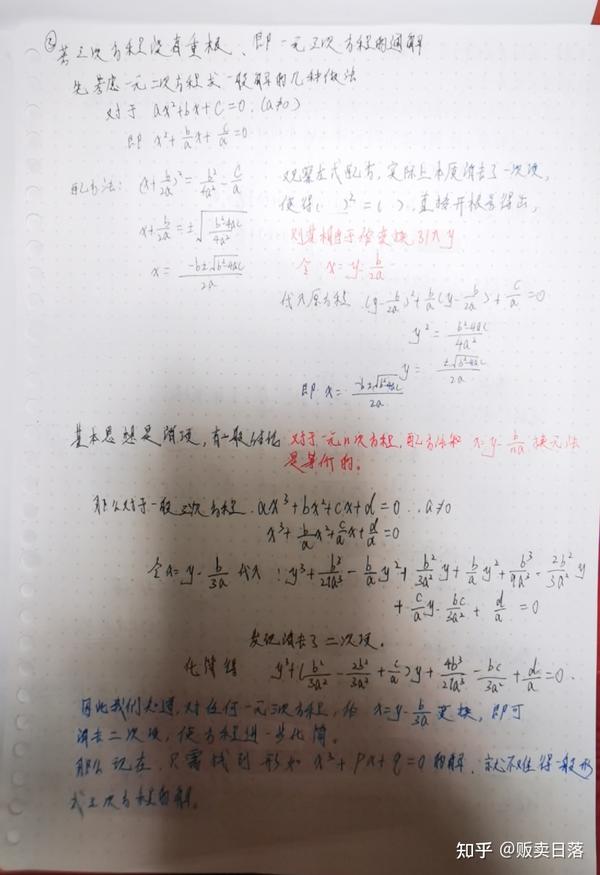 ② 若三次方程没有重根、即一元三次方程的通解
先考虑一元二次方程式一般解的几种做法
对于 ax²+bx+c=0.(a≠0)
即 x²+b/a x+c/a=0
配方法: (x+b/2a)²=b²/4a²-c/a
x+b/2a=±√(b²-4ac/4a²)
x=-b±√(b²-4ac)/2a
观察左式配方,实际上本质消去了一次项,
使得( )²=( ),直接开根号得出,
则其相当于给变换引入y
令 x=y-b/2a
代入原方程 (y-b/2a)²+b/a(y-b/2a)+c/a=0
y²=b²-4ac/4a²
y=±√(b²-4ac)/2a
即 x=-b±√(b²-4ac)/2a
基本思想是消项,有一般结论 对于一元n次方程,配方法和 x=y-b/na 换元法
是等价的。
那么对于一般三次方程.ax³+bx²+cx+d=0..a≠0
x³+b/a x²+c/a x+d/a=0
令x=y-b/3a 代入:y³+b³/27a³-b/a y²+b²/3a² y+b/a y²+b³/9a³-2b²/3a² y
+c/a y-bc/3a²+d/a=0
发现消去了二次项.
化简得 y³+(b²/3a²-2b²/3a²+c/a)y+4b³/27a³-bc/3a²+d/a=0.
因此我们知道,对任何一元三次方程,作 x=y-b/3a 变换,即可
消去二次项,使方程进一步化简。
那么现在,只需找到形如 x³+px+q=0 的解,就不难得一般形
式三次方程的解。
知乎 @贩卖日落